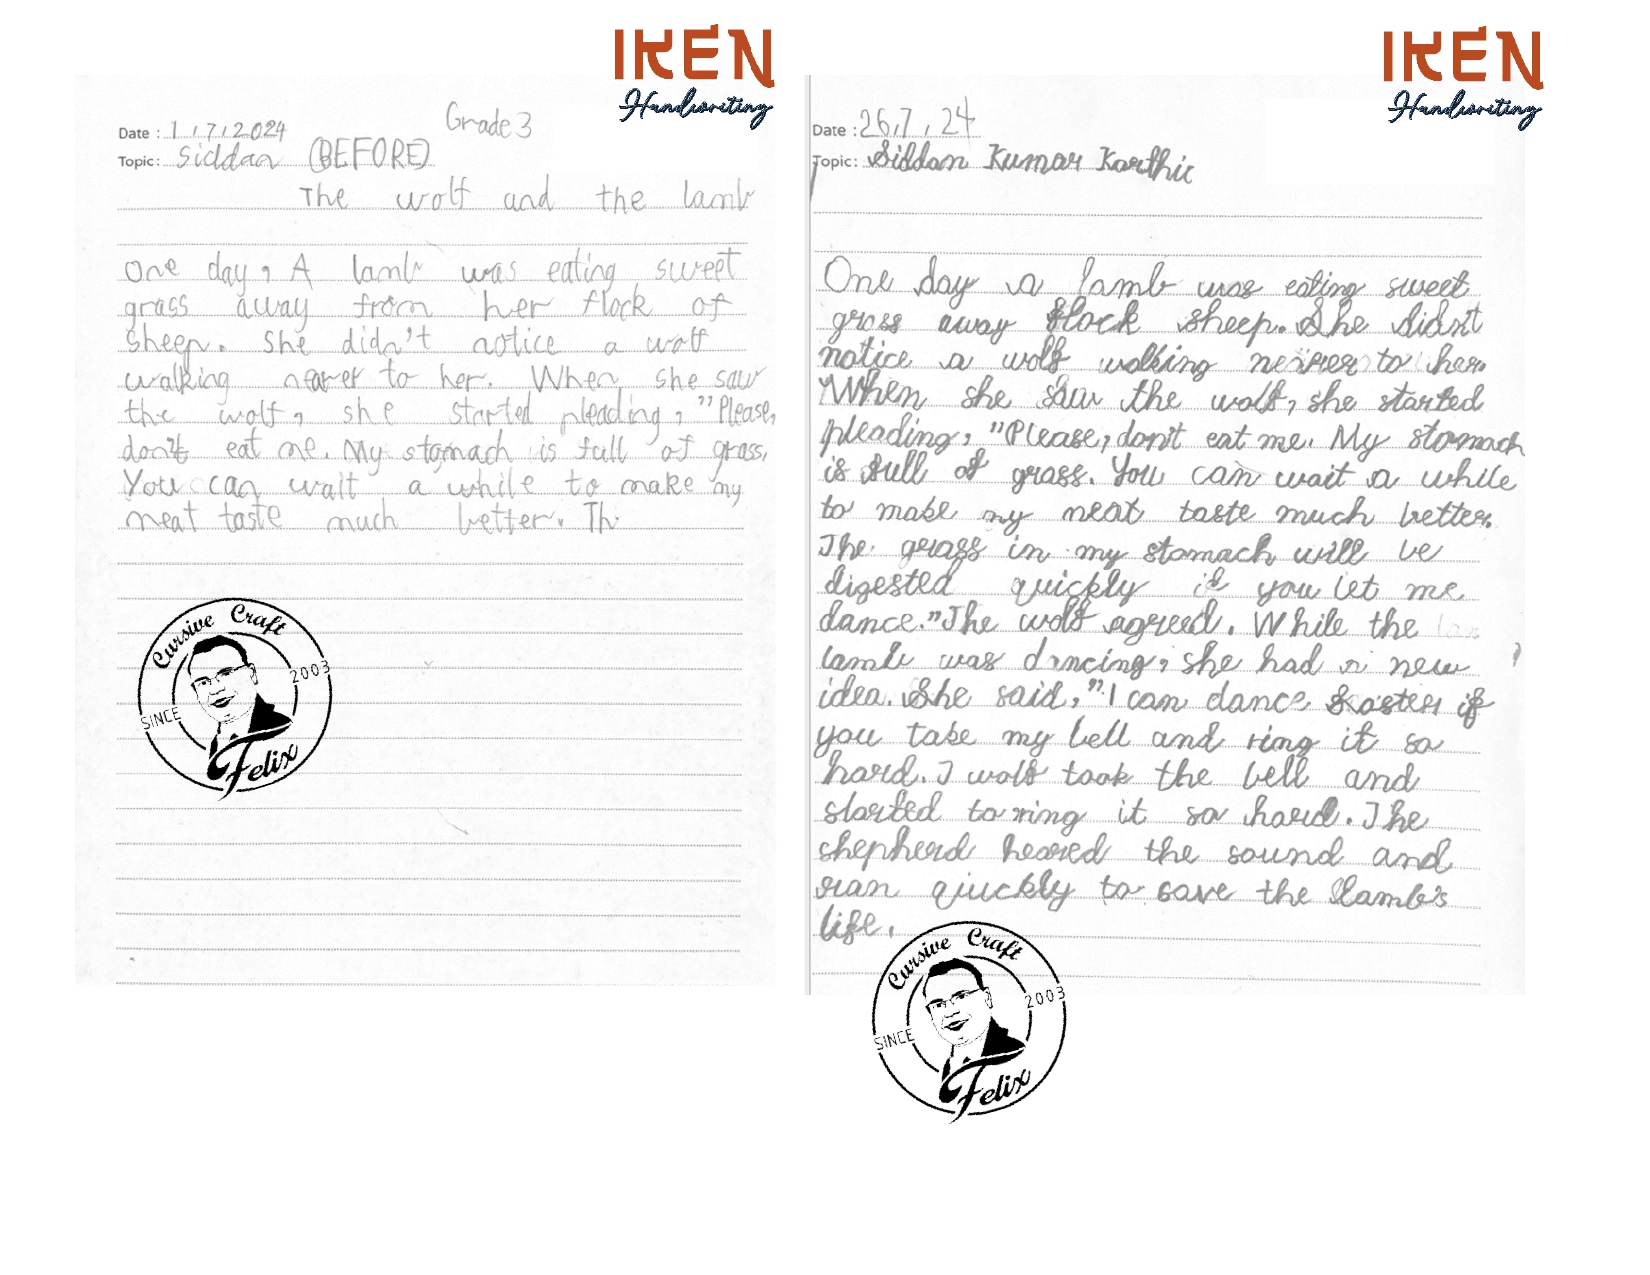 IKEN
Handwriting
Grade 3
Date : 1 / 7 / 2024
Topic: Siddan (BEFORE)
The wolf and the lamb
One day, A lamb was eating sweet
grass away from her flock of
sheep. She didn't notice a wolf
walking nearer to her. When she saw
the wolf, she started pleading, "Please,
don't eat me. My stomach is full of grass.
You can wait a while to make my
meat taste much better. Th
Cursive Craft
SINCE 2003
Felix
IKEN
Handwriting
Date : 26, 7, 24
Topic: Siddan Kumar Karthic
One day a lamb was eating sweet
grass away flock sheep. She didn't
notice a wolf walking nearer to her.
When she saw the wolf, she started
pleading, "Please, don't eat me. My stomach
is full of grass. You can wait a while
to make my meat taste much better.
The grass in my stomach will be
digested quickly if you let me
dance." The wolf agreed. While the
lamb was dancing, she had a new
idea. She said, "I can dance faster if
you take my bell and ring it so
hard. I wolf took the bell and
started to ring it so hard. The
shepherd heared the sound and
ran qiuckly to save the lamb's
life.
Cursive Craft
SINCE 2003
Felix